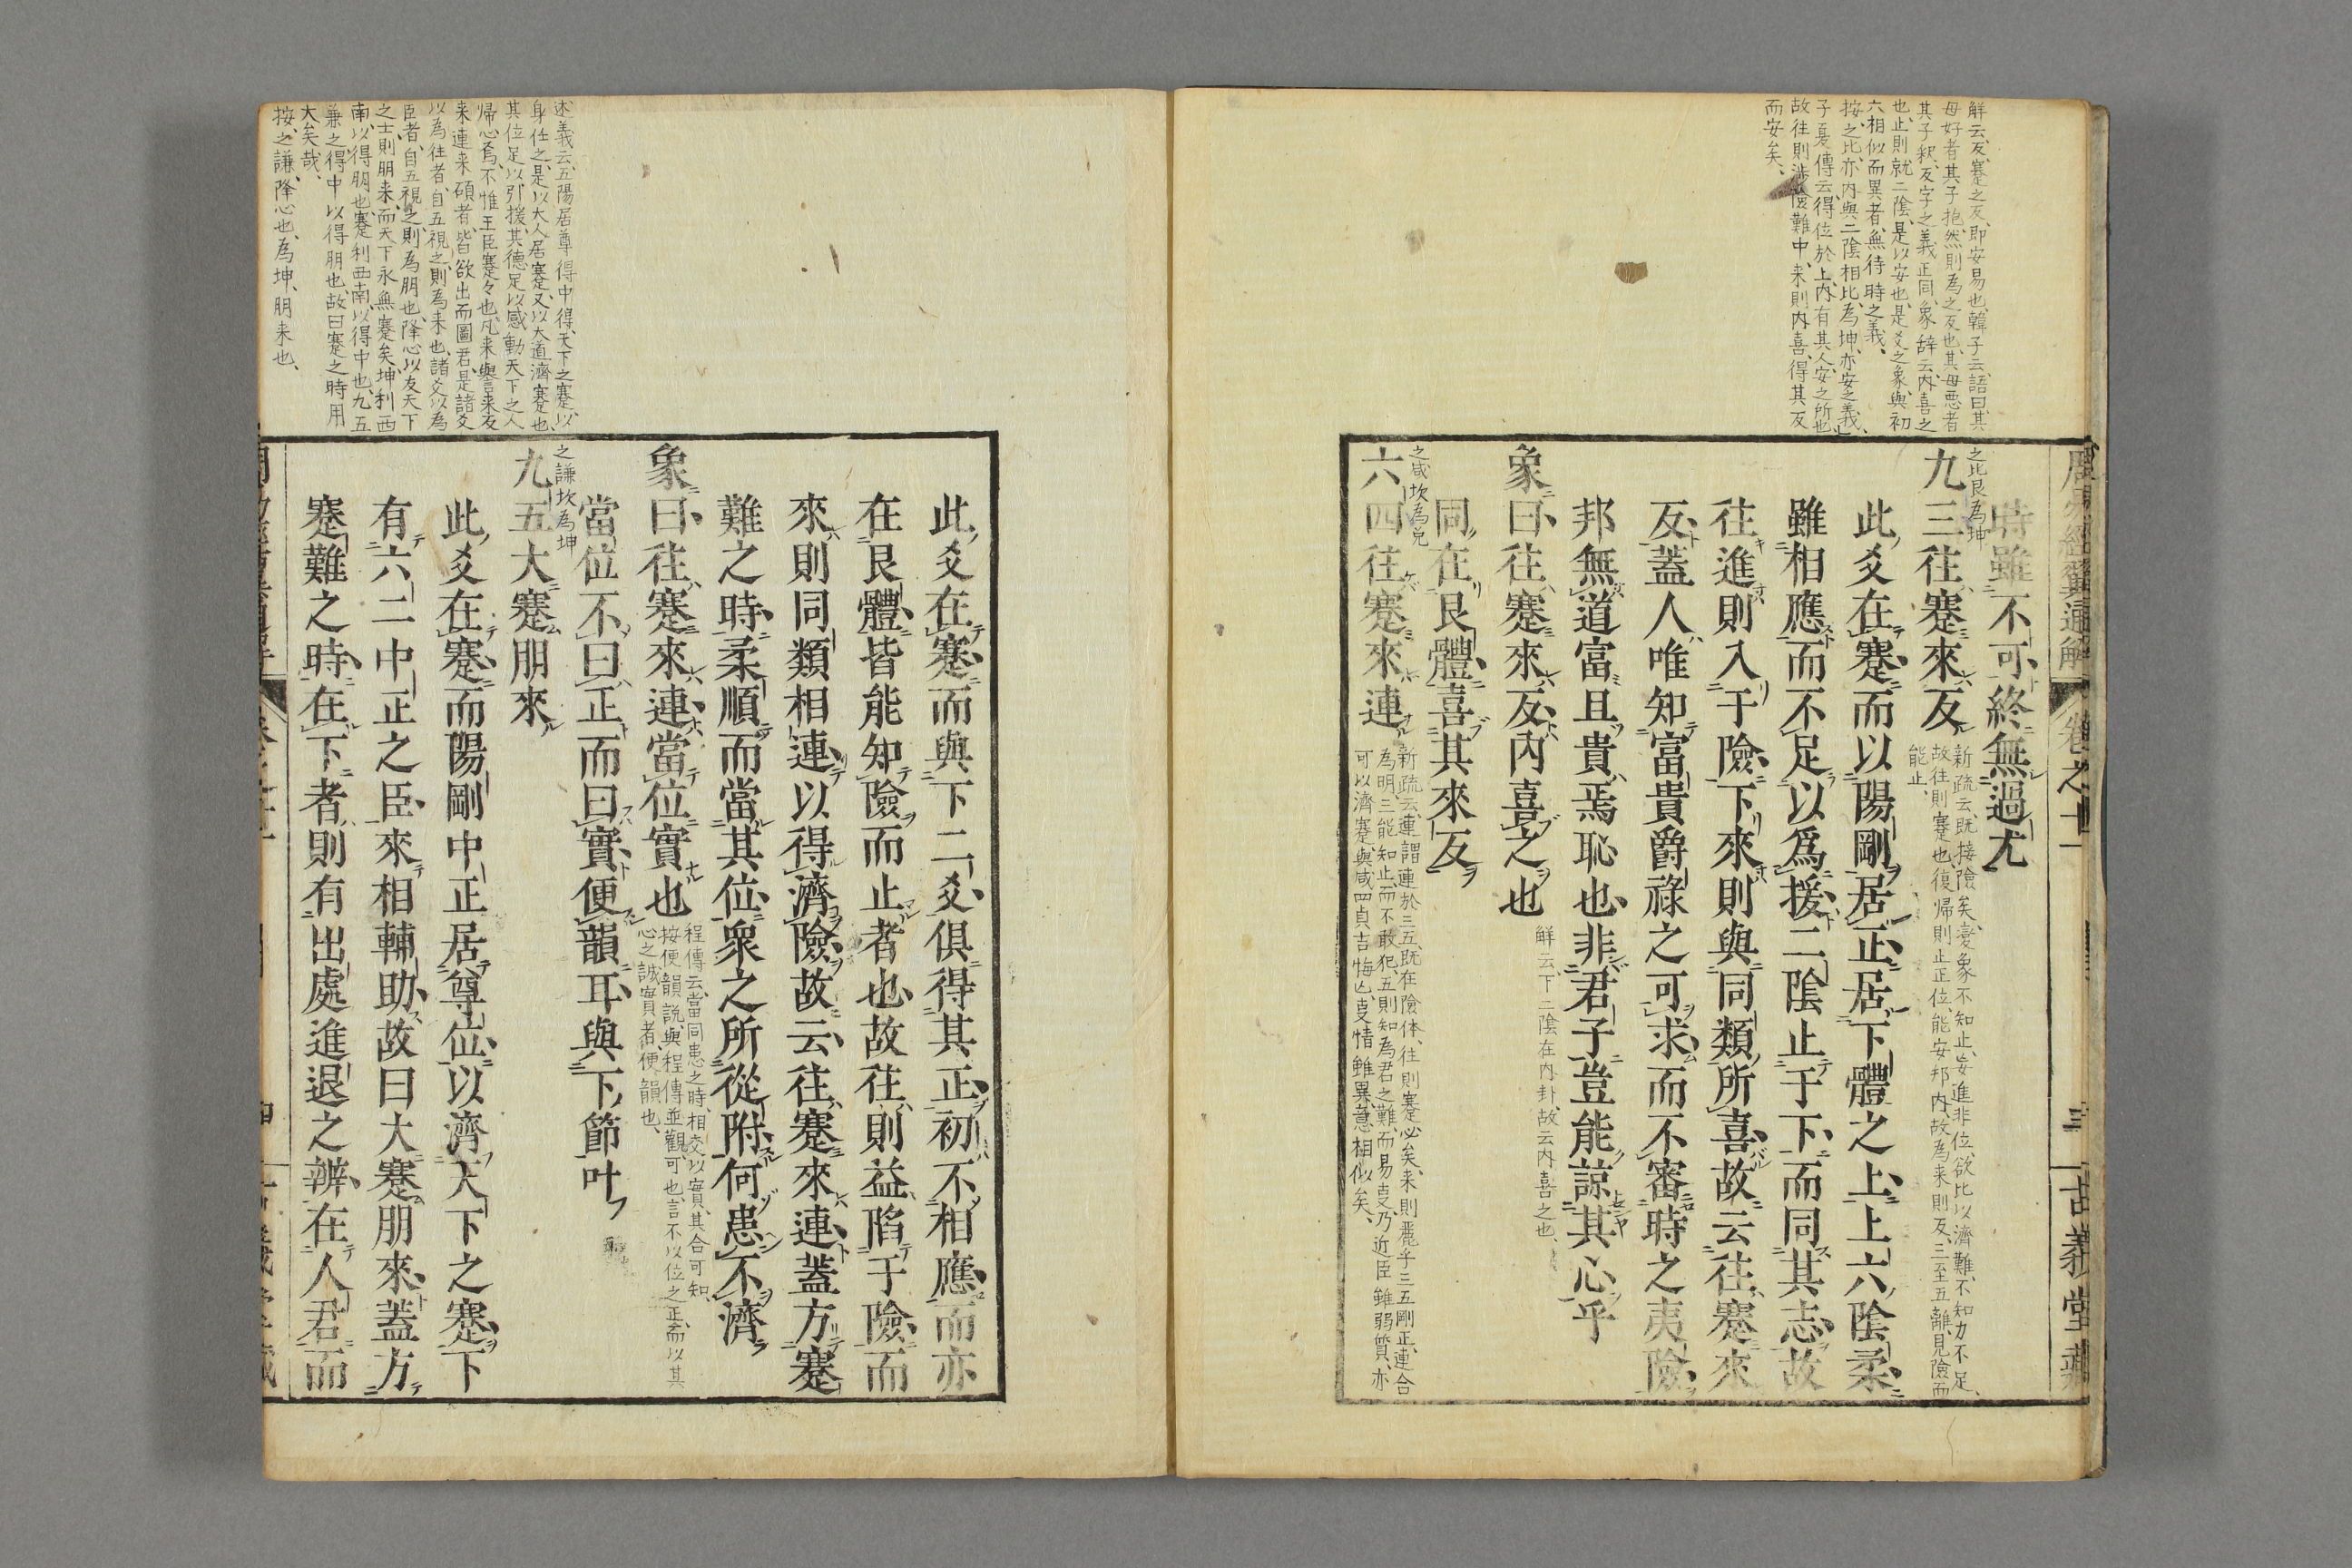 解云、反、蹇之反、即安易也、韓子云、語曰、其
母好者其子抱、然則為之反也、其母惡者
其子釈、反字之義正同、象辞云、内喜之
也、止則就二陰、是以安也、是爻之象、與初
六相似而異者、無待時之義、
按、之比、亦内與二陰相比、為坤、亦安之義、
子夏傳云、得位於上、内有其人、安之所也
故往則渉險難中、来則内喜、得其反
而安矣、
周易經翼通解 卷之十一 三 古義堂藏
時雖不可終無過尤
之比艮為坤
九三往蹇來反
新疏云、既接險矣、憂象不知止、妄進非位、欲比以濟難、不知力不足、
故往則蹇也、復歸則止正位、能安邦内、故為来則反、三至五離、見險而
能止、
此爻在蹇而以陽剛居正居下體之上上六陰柔
雖相應而不足以爲援二陰止于下而同其志故
往進則入于險下來則與同類所喜故云往蹇來
反蓋人唯知富貴爵祿之可求而不審時之夷險
邦無道富且貴焉恥也非君子豈能諒其心乎
象曰往蹇來反內喜之也
解云、下二陰在内卦、故云内喜之也、
同在艮體喜其來反
之咸坎為兌
六四往蹇來連
新疏云、連謂連於三五、既在險体、往則蹇必矣、来則麗乎三五剛正、連合
為明、三能知止、而不敢犯、五則知為君之難、而易支、乃近臣雖弱質、亦
可以濟蹇、與咸四貞吉悔亡、支情雖異、意相似矣、
此爻在蹇而與下二爻俱得其正初不相應而亦
在艮體皆能知險而止者也故往則益陷于險而
來則同類相連以得濟險故云往蹇來連蓋方蹇
難之時柔順而當其位衆之所從附何患不濟
象曰往蹇來連當位實也
程傳云、當同患之時、相交以實、其合可知、
按便韻説、與程傳並觀、可也、言不以位之正、而以其
心之誠實者、便韻也、
當位不曰正而曰實便韻耳與下節叶
之謙坎為坤
九五大蹇朋來
此爻在蹇而陽剛中正居尊位以濟天下之蹇下
有六二中正之臣來相輔助故曰大蹇朋來蓋方
蹇難之時在下者則有出處進退之辨在人君而
述義云、五陽居尊得中、得天下之蹇、以
身任之、是以大人居蹇、又以大道濟蹇也、
其位足以引援、其德足以感動天下之人
帰心焉、不惟王臣蹇々也、凡来與言来反
来連来碩者、皆欲出而圖君、是諸爻
以為往者、自五視之、則為来也、諸爻以為
臣者、自五視之、則為朋也、降心以友天下
之士、則朋来、而天下永無蹇矣、坤利西
南、以得朋也、蹇利西南、以得中也、九五
兼之、得中以得朋也、故曰蹇之時用
大矣哉、
按、之謙、降心也、為坤、朋来也、